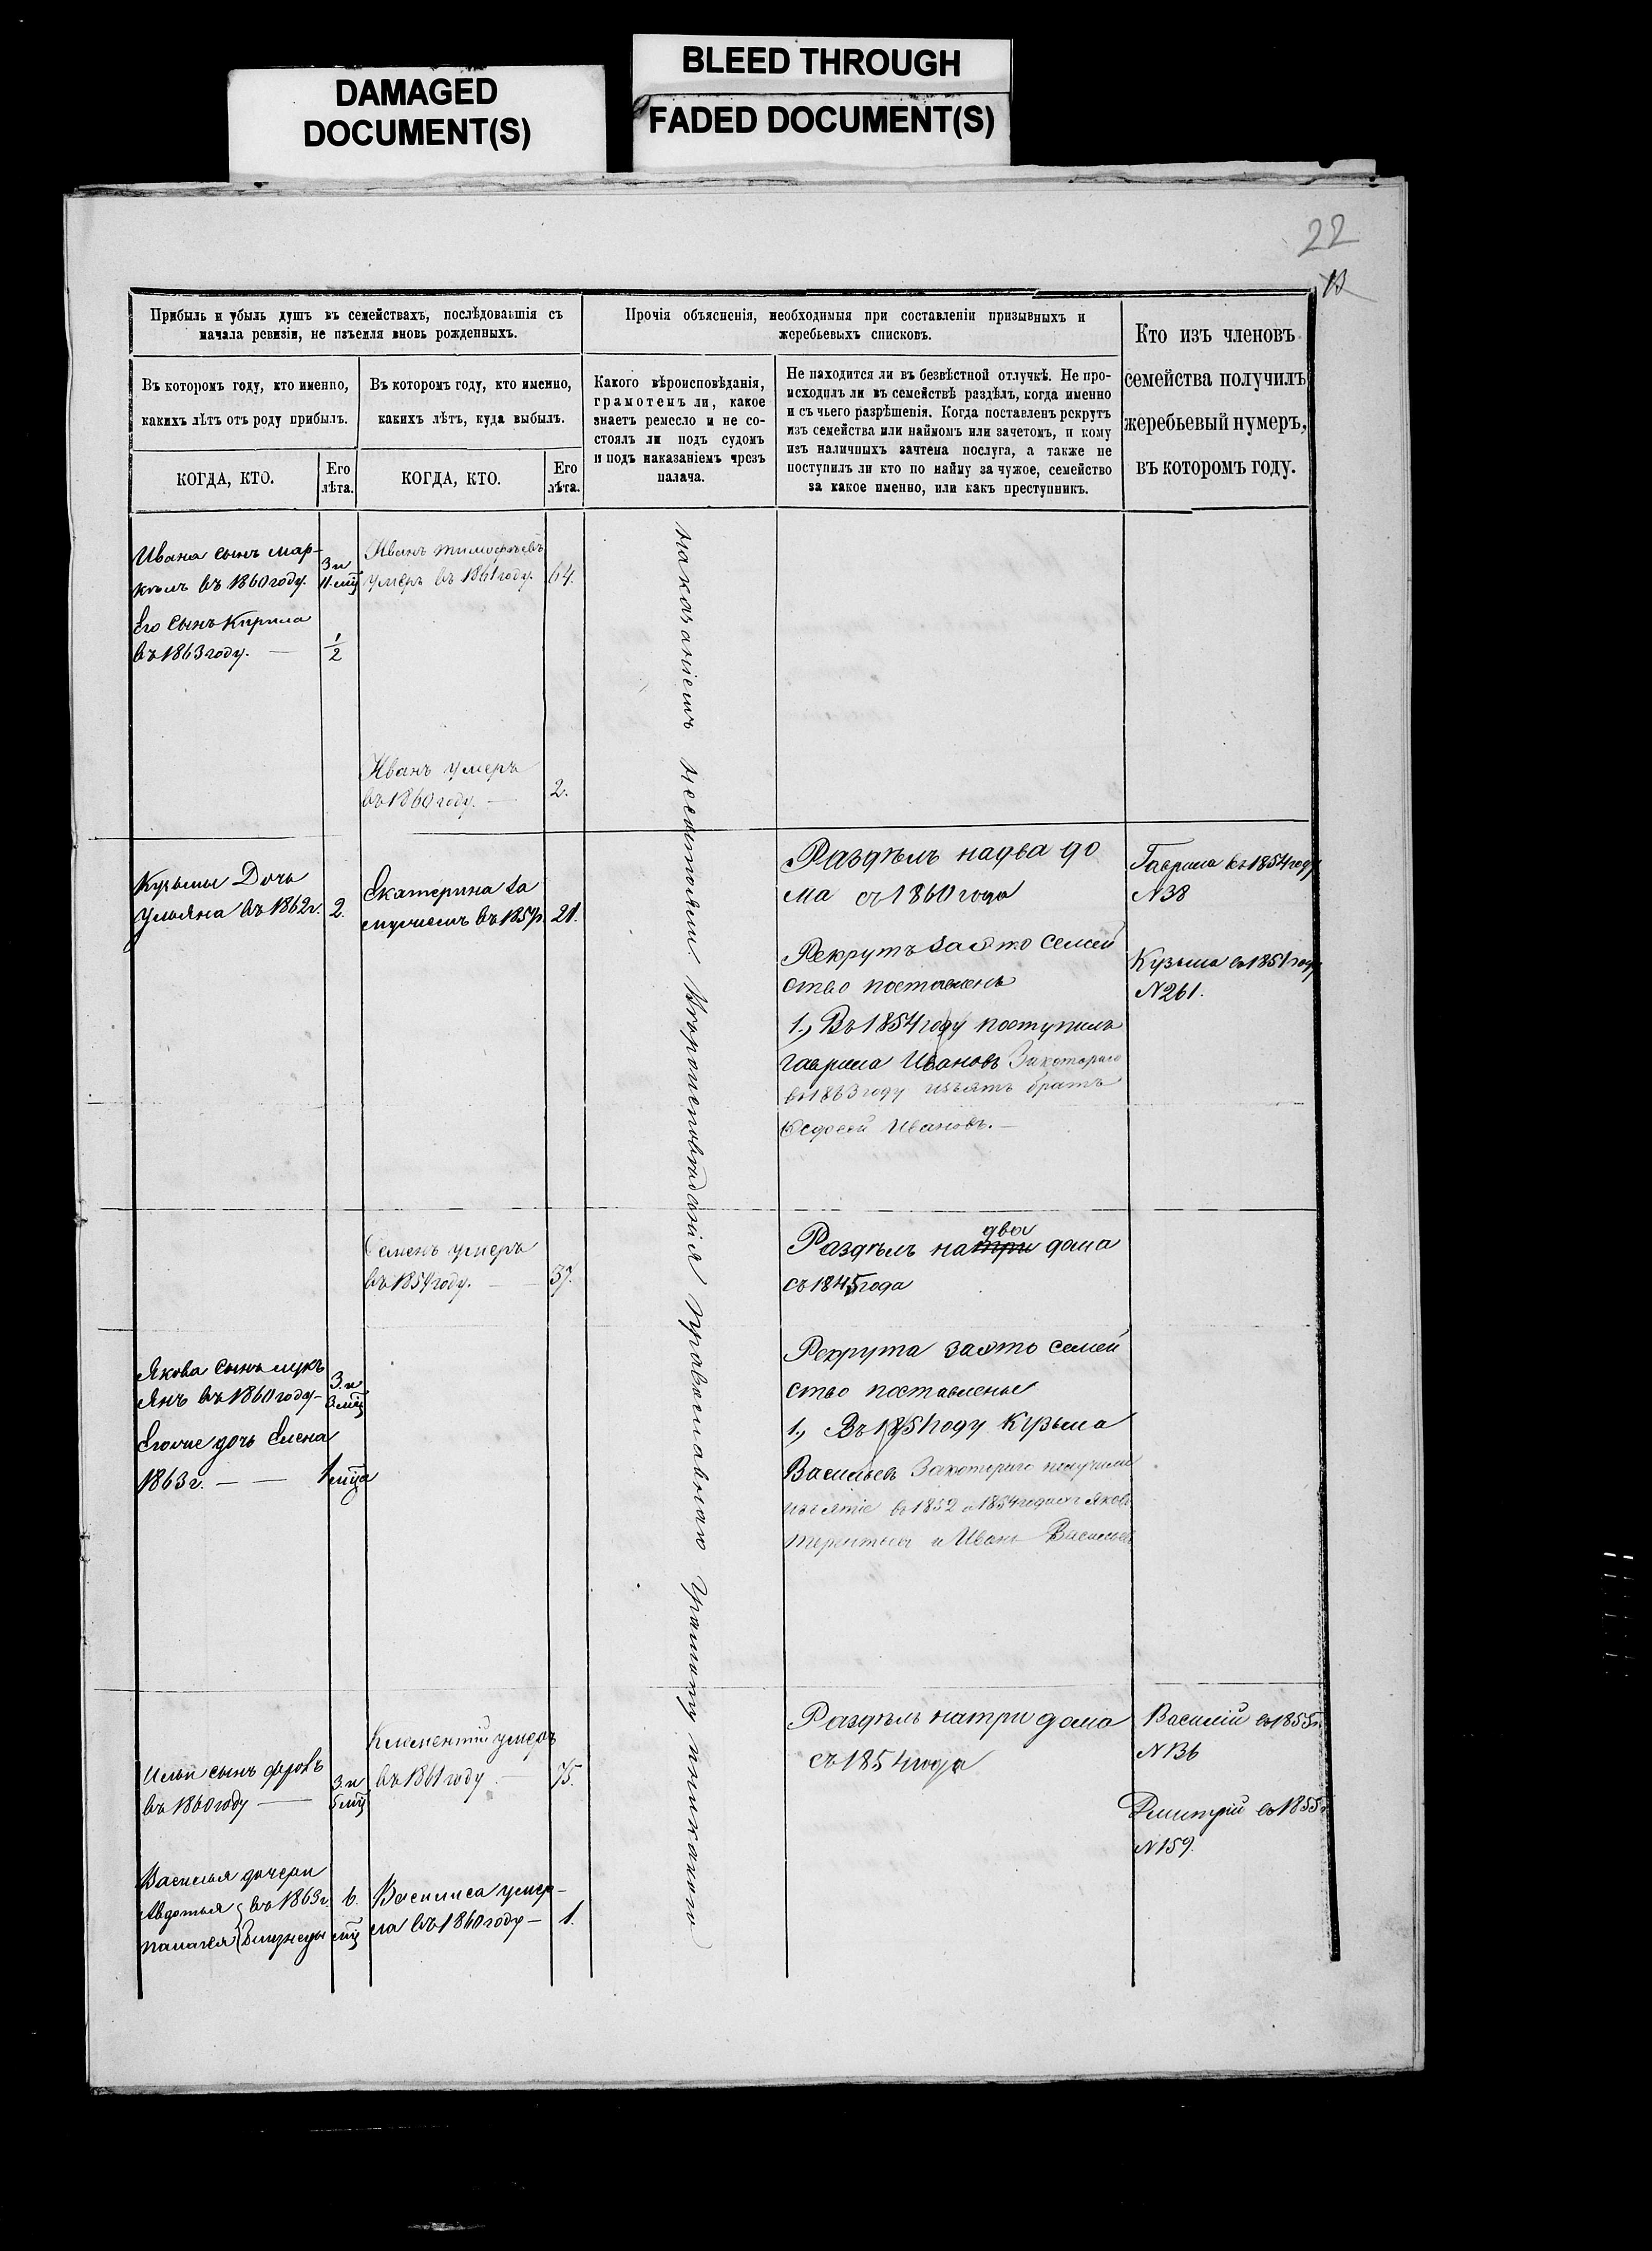 DAMAGED
DOCUMENT(S)
BLEED THROUGH
FADED DOCUMENT(S)
22
Прибыль и убыль душъ въ семействахъ, послѣдовавшія съ
начала ревизіи, не изъемля вновь рожденныхъ.
Прочія объясненія, необходимыя при составленіи призывныхъ и
жеребьевыхъ списковъ.
Кто изъ членовъ
семейства получилъ
жеребьевый нумеръ,
въ которомъ году.
Въ которомъ году, кто именно,
какихъ лѣтъ отъ роду прибылъ.
Въ которомъ году, кто именно,
какихъ лѣтъ, куда выбылъ.
Какого вѣроисповѣданія,
грамотенъ ли, какое
знаетъ ремесло и не со-
стоялъ ли подъ судомъ
и подъ наказаніемъ чрезъ
палача.
Не находится ли въ безвѣстной отлучкѣ. Не про-
исходилъ ли въ семействѣ раздѣлъ, когда именно
и съ чьего разрѣшенія. Когда поставленъ рекрутъ
изъ семейства или наймомъ или зачетомъ, и кому
изъ наличныхъ зачтена послуга, а также не
поступилъ ли кто по найму за чужое, семейство
за какое именно, или какъ преступникъ.
КОГДА, КТО.
Его
лѣта.
КОГДА, КТО.
Его
лѣта.
Ивана сынъ Мар-
кѣлъ въ 1860 году.
3 и
11 мцъ
Его сынъ Кирила
въ 1863 году. —
1/2
Иванъ Тимофѣевъ
умеръ въ 1861 году.
64.
Иванъ умеръ
въ 1860 году. —
2.
наказаніемъ несостояли. Вѣроисповѣданія православнаго грамоту
Кузьмы Дочь
Ульяна въ 1862 г.
2.
Екатерина за
мужемъ въ 1857 г.
21.
Раздѣлъ на два до
ма съ 1860 года
Рекрутъ за это семей
ство поставленъ
1., Въ 1854 году поступилъ
Гаврила Ивановъ За котораго
въ 1863 году изъятъ братъ
Федосей Ивановъ. —
Гаврила въ 1854 году
N 38
Кузьма въ 1851 году
N 261.
Семенъ умеръ
въ 1854 году. —
37.
два
Раздѣлъ на три дома
съ 1845 года
Якова сынъ Лукъ
янъ въ 1860 году —
3. и
мцъ
Его же дочь Елена
1863 г. — —
1 мца
Рекрута за это семей
ство поставлены
1., Въ 1851 году Кузьма
Васильевъ За котораго получили
изъятіе въ 1852 и 1854 годахъ Яковъ
Терентьевъ и Иванъ Васильевъ
Ильи сынъ Фролъ
въ 1860 году —
3. и
5 мцъ
Климентій умеръ
въ 1861 году —
75.
Раздѣлъ на три дома
съ 1854 года
Василій въ 1855 г.
N 136
Дмитрій въ 1855 г.
N 159.
Василья дочери
Авдотья въ 1863 г.
Палагея Близнецы
6.
мцъ
Василиса умер-
ла въ 1860 году —
1.